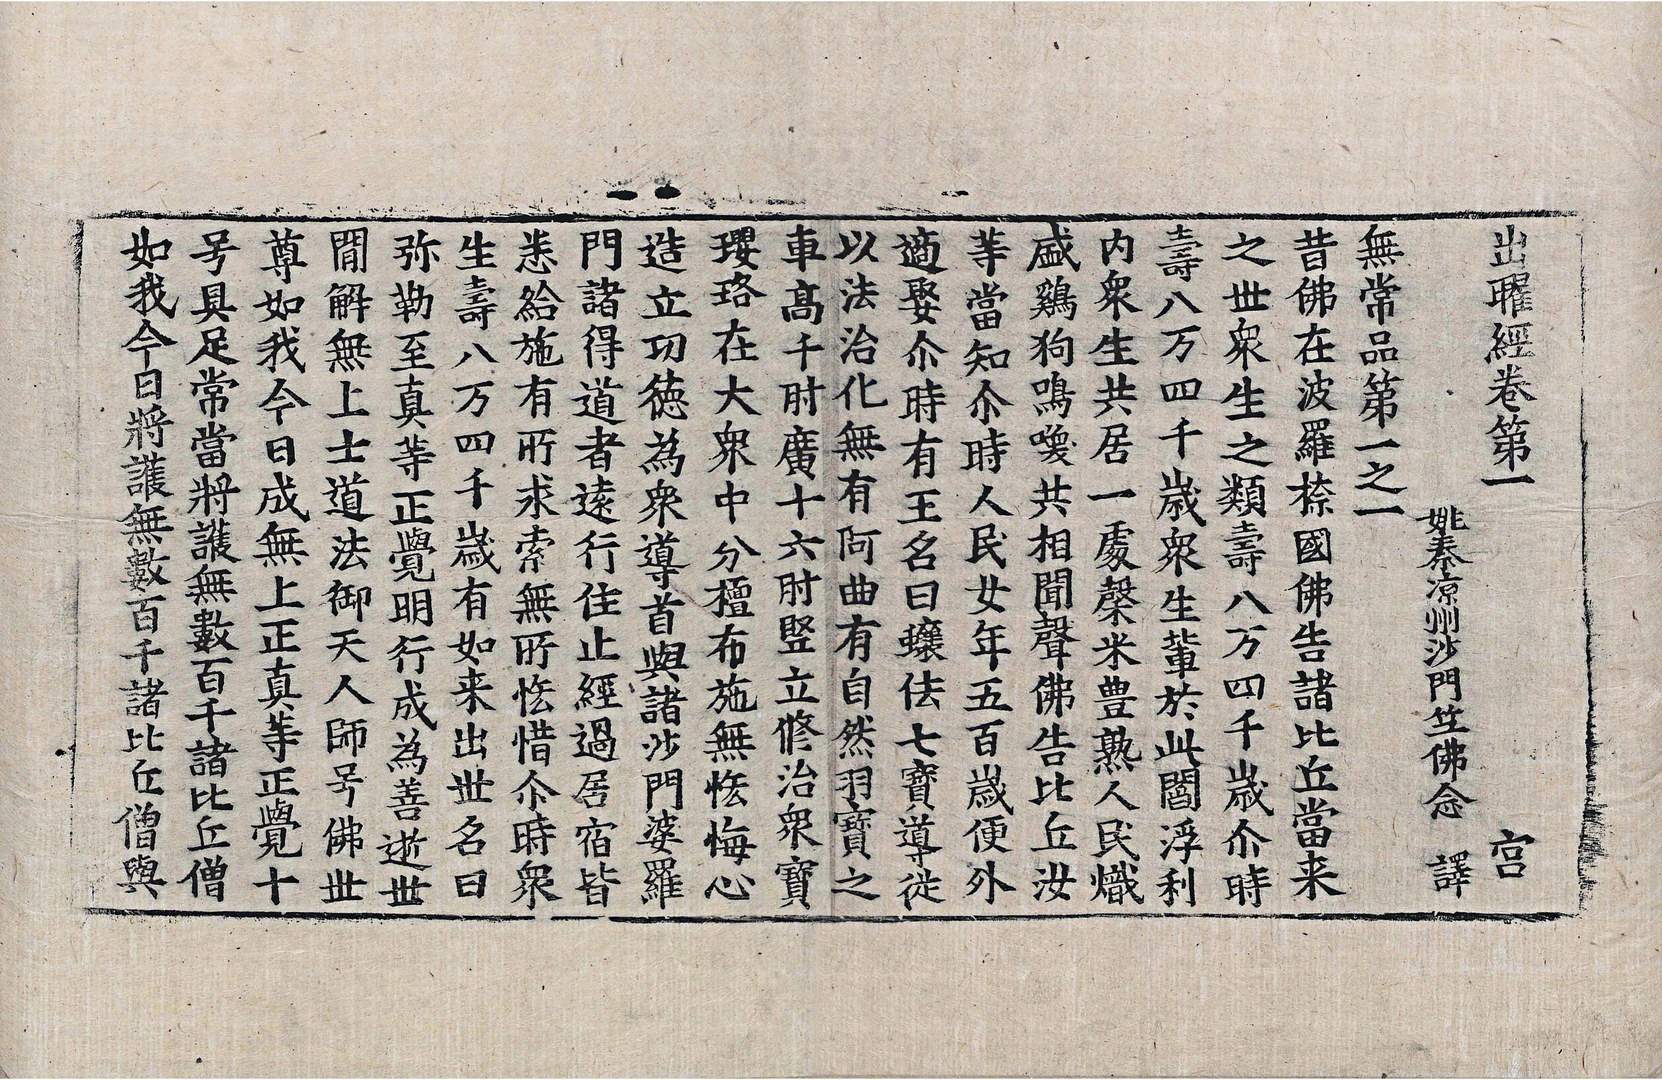 出曜經卷第一 宫
姚秦凉州沙門竺佛念 譯
無常品第一之一
昔佛在波羅㮈國佛告諸比丘當来
之世衆生之類壽八万四千歲尒時
壽八万四千歲衆生軰於此閻浮利
内衆生共居一處槃米豊熟人民熾
盛鷄狗鳴喚共相聞聲佛告比丘汝
等當知尒時人民女年五百歲便外
適娶尒時有王名曰蠰佉七寶導従
以法治化無有阿曲有自然羽寶之
車髙千肘廣十六肘竪立修治衆寶
瓔珞在大衆中分檀布施無恡悔心
造立功徳為衆導首與諸沙門婆羅
門諸得道者逺行住止經過居宿皆
悉給施有所求索無所恡惜尒時衆
生壽八万四千歲有如来出世名曰
弥勒至真等正覺明行成為善逝世
間解無上士道法御天人師号佛世
尊如我今日成無上正真等正覺十
号具足常當將護無數百千諸比丘僧
如我今日將護無數百千諸比丘僧與